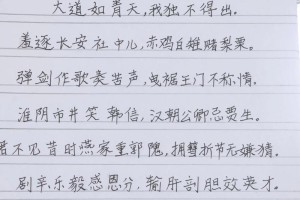 大道如青天,我独不得出.
羞逐长安社中儿,赤鸡白雉赌梨栗.
弹剑作歌奏苦声,曳裾王门不称情.
淮阴市井笑韩信,汉朝公卿忌贾生.
君不见昔时燕家重郭隗,拥彗折节无嫌猜.
剧辛乐毅感恩分,输肝剖胆效英才.